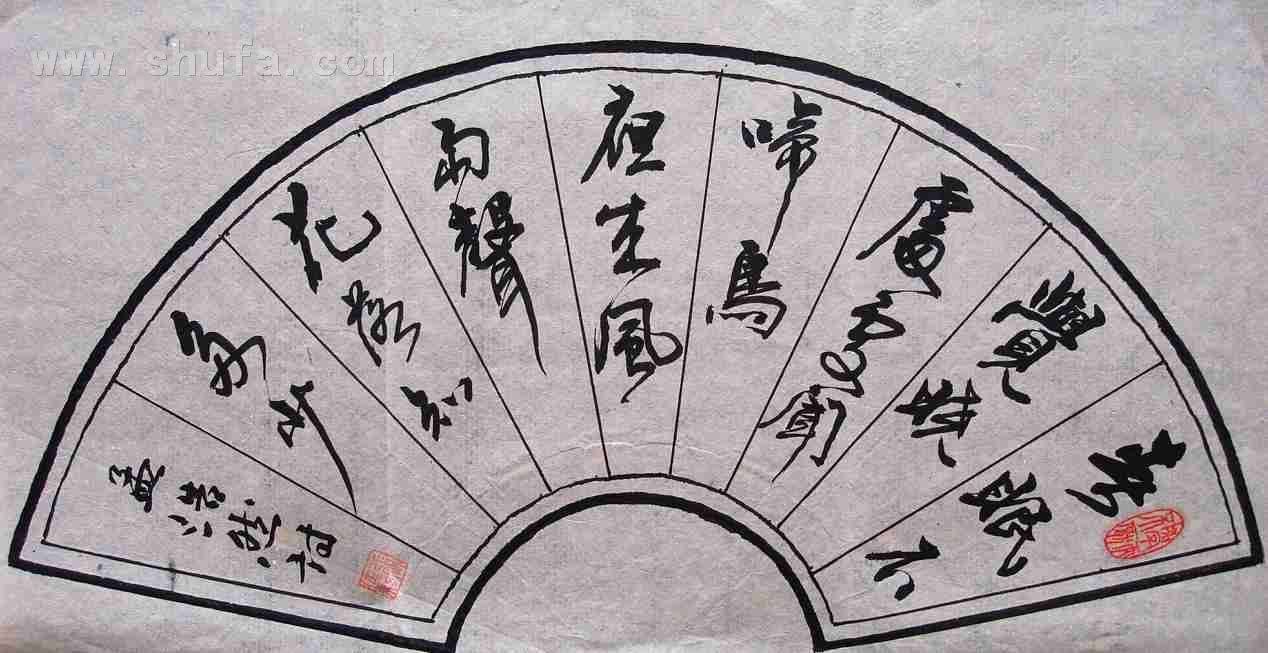 www.shufa.com
春眠不
覺曉
處處聞
啼鳥
夜来風
雨聲
花落知
多少
孟浩然诗